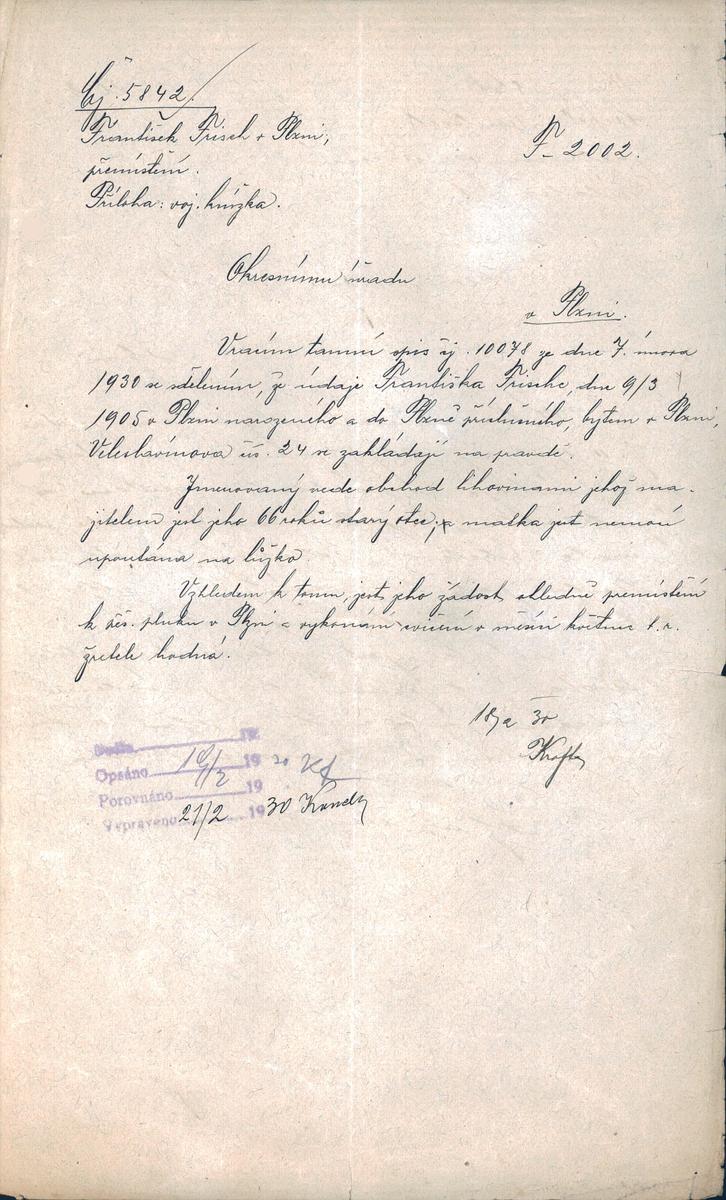 Čj. 5842/
František Frisch v Plzni,
přemístění.
Příloha: voj. knížka.
F- 2002.
Okresnímu úřadu
v Plzni.
Vracím tamní spis čj. 10078 ze dne 7. února
1930 se sdělením, že údaje Františka Frische, dne 9/3
1905 v Plzni narozeného a do Plzně příslušného, bytem v Plzni,
Veleslavínova čís. 24 se zakládají na pravdě.
Jmenovaný vede obchod lihovinami jehož ma-
jitelem jest jeho 66 roků starý otec, a matka jest nemocí
upoutána na lůžko.
Vzhledem k tomu, jest jeho žádost ohledně přemístění
k pěš. pluku v Plzni a vykonání cvičení v měsíci květnu t. r.
zřetele hodná.
18/2 30
Opsáno 19/2 19 30
Porovnáno 19
Vypraveno 21/2 19 30